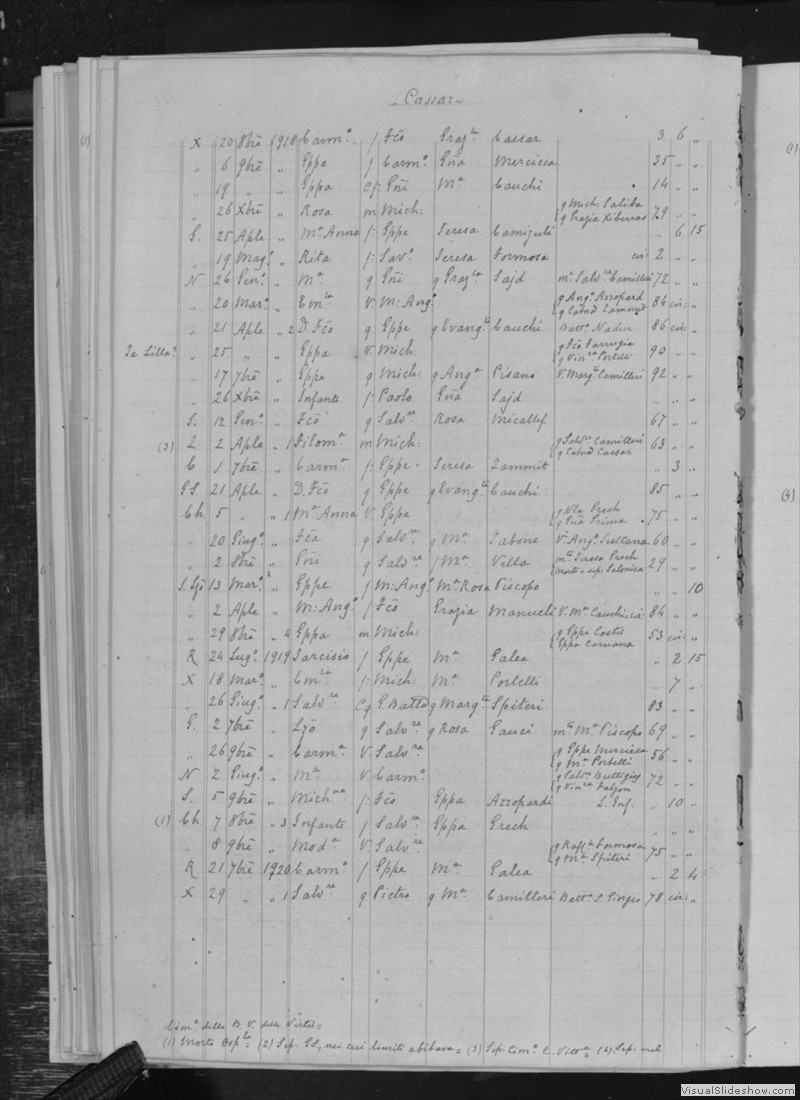 Cassar
X 20 8bre 1918 Carm.o f Fco Graz.la Cassar 3 6 "
" 6 9bre " Gppe f Carm.o Gna Mercieca 35 " "
" 19 " " Gppa Cf: Gni Ma Cauchi 14 " "
" 26 Xbre " Rosa m Mich: { g Mich: Saliba g Grazia Xiberras 79 " "
G. 25 Aple " Ma Anna f: Gppe Teresa Camizuli " 6 15
" 19 Mag.o " Rita f: Sav.o Teresa Formosa cir: 2 " "
N 26 Gen.o " Ma g Gni g Graz.la Sajd m.a Salv.re Camilleri 72 " "
" 20 Mar.o " Em.la V. M: Ang.o { g Ang.o Azzopard g Catna 84 cir: "
" 21 Aple " 2 D. Fco g Gppe g Evang.ta Cauchi Batt.o Nadur 86 cir: "
" 25 " " Gppa V. Mich: { g Fco Farrugia g Vin.ra Portelli 90 " "
" 17 7bre " Gppe g Mich: g Ang.a Pisano V. Marg.a Camilleri 92 " "
" 26 Xbre " Infante f: Paolo Gna Sajd " " "
S. 12 Gen.o " Fco g Salv.re Rosa Micallef 67 " "
(3) L 2 Aple " 1 Filom.a m Mich: { g Salv.re Camilleri g Catna Cassar 63 " "
C 1 7bre " Carm.a f: Gppe Teresa Zammit " 3 "
GS. 21 Aple " D. Fco g Gppe g Evang.ta Cauchi 85 " "
Ch 5 " " 1 Ma Anna V. Gppe { g Nla Grech g Gna Prima 75 " "
" 20 Giug.o " Fca g Salv.re g Ma Tabone V. Ang.o Sultana 60 " "
" 2 8bre " Gni g Salv.re f Ma Vella m.a Teresa Grech (morto e sep: Salonica 29 " "
13 Mar.o " Gppe f M: Ang.o Ma Rosa Piscopo " " 10
" 2 Aple " M: Ang.o f Fco Grazia Manueli V. Ma Cauchi cir: 84 " "
" 29 8bre " 4 Gppa m Mich: { g Gppe g Gppa Caruana 53 cir: "
R 24 Lug.o 1919 Tarcisio f Gppe Ma Galea " 2 15
X 18 Mar.o " Em.la f: Mich: Ma Portelli " 7 "
" 26 Giug.o " 1 Salv.re Cg G. Batta g Marg.ta Spiteri 83 " "
G. 2 7bre " Lzo g Salv.re g Rosa Gauci m.a Ma Piscopo 69 " "
" 26 9bre " Carm.a V. Salv.re { g Gppe Mercieca g Ma Portelli 56 " "
N 2 Giug.o " Ma V. Carm.o { g Salv.re Buttigieg g Vin.ra Falzon 72 " "
S. 5 9bre " Mich.na f: Fco Gppa Azzopardi " 10 "
(1) Ch 7 8bre " 3 Infante f Salv.re Gppa Grech " " "
" 8 9bre " Mod.a V. Salv.re { g Raff.le Formosa g Ma Spiteri 75 " "
R 21 7bre 1920 Carm.o f Gppe Ma Galea " 2 4
X 29 " " 1 Salv.re g Pietro g Ma Camilleri Batt.o S. Giorgio 78 cir: "
Cim.o della B. V. della Virtù =
(1) Morto Osp.le = (2) Sep: GS., nei cui limiti abitava = (3) Sep: Cim.o = (4) Sep: nel
(1)
(4)
VisualSlideshow.com